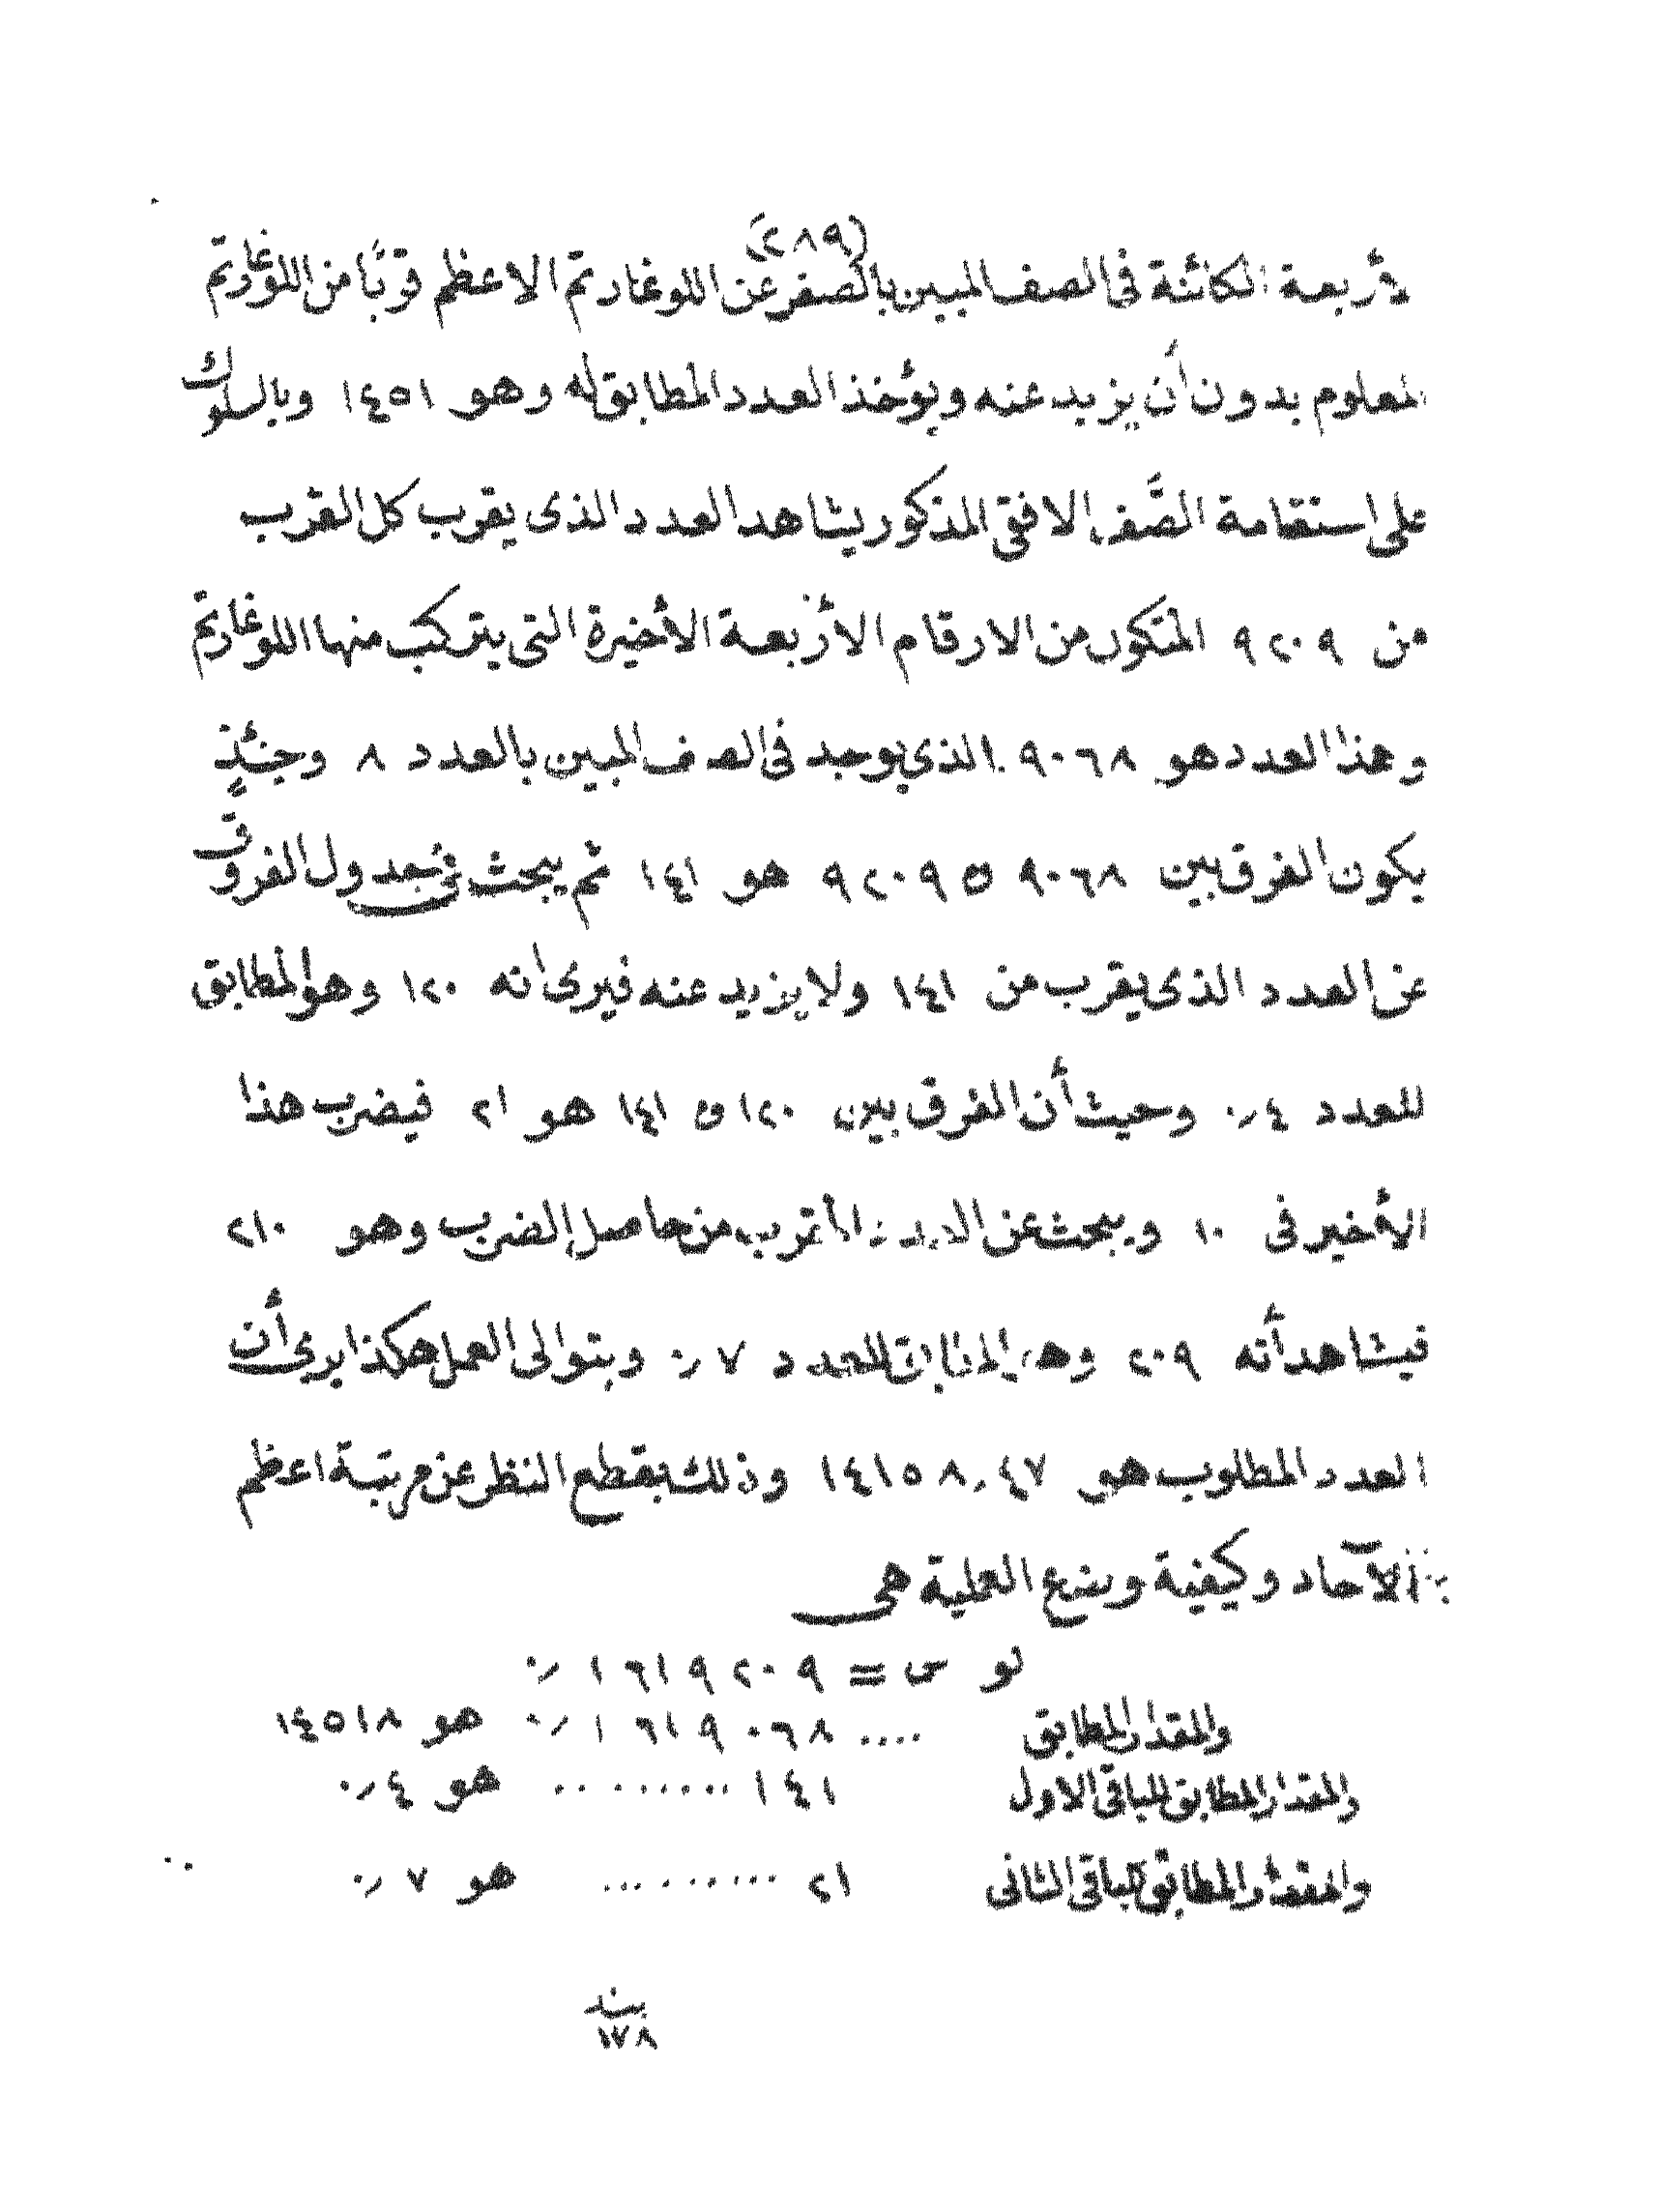 (٢٨٩)
لأربعة الكائنة فى الصف المبين بالصفر عن اللوغارتم الاعظم قربًا من اللوغارتم
المعلوم بدون أن يزيد عنه ويؤخذ العدد المطابق له وهو ١٤٥١ وبالسلوك
على استقامة الصَّف الافقى المذكور يشاهد العدد الذى يقرب كل القرب
من ٩٢٠٩ المتكون من الارقام الأربعة الأخيرة التى يتركب منها اللوغارتم
وهذا العدد هو ٩٠٦٨ الذي يوجد فى الصف المبين بالعدد ٨ وحنئذٍ
يكون الفرق بين ٩٠٦٨ و ٩٢٠٩ هو ١٤١ ثم يبحث فى جدول الفروق
عن العدد الذى يقرب من ١٤١ ولا يزيد عنه فيرى انه ١٢٠ وهو المطابق
للعدد ٤ ر٠ وحيث أن الفرق بين ١٢٠ و ١٤١ هو ٢١ فيضرب هذا
الأخير فى ١٠ ويبحث عن العدد الأقرب من حاصل الضرب وهو ٢١٠
فيشاهد أنه ٢٠٩ وهو المطابق للعدد ٧ ر٠ وبتوالى العمل هكذا يرى أن
العدد المطلوب هو ١٤١٥٨,٤٧ وذلك بقطع النظر عن مرتبة اعظم
الآحاد وكيفية وضع العملية هى
لو س = ١٦١٩٢٠٩ ر٠
والمقدار المطابق .... ١٦١٩٠٦٨ ر٠ هو ١٤٥١٨
والمقدار المطابق للباقى الاول ١٤١ .......... هو ٤ ر٠
والمقدار المطابق للباقى الثانى ٢١ .......... هو ٧ ر٠
بند
١٧٨